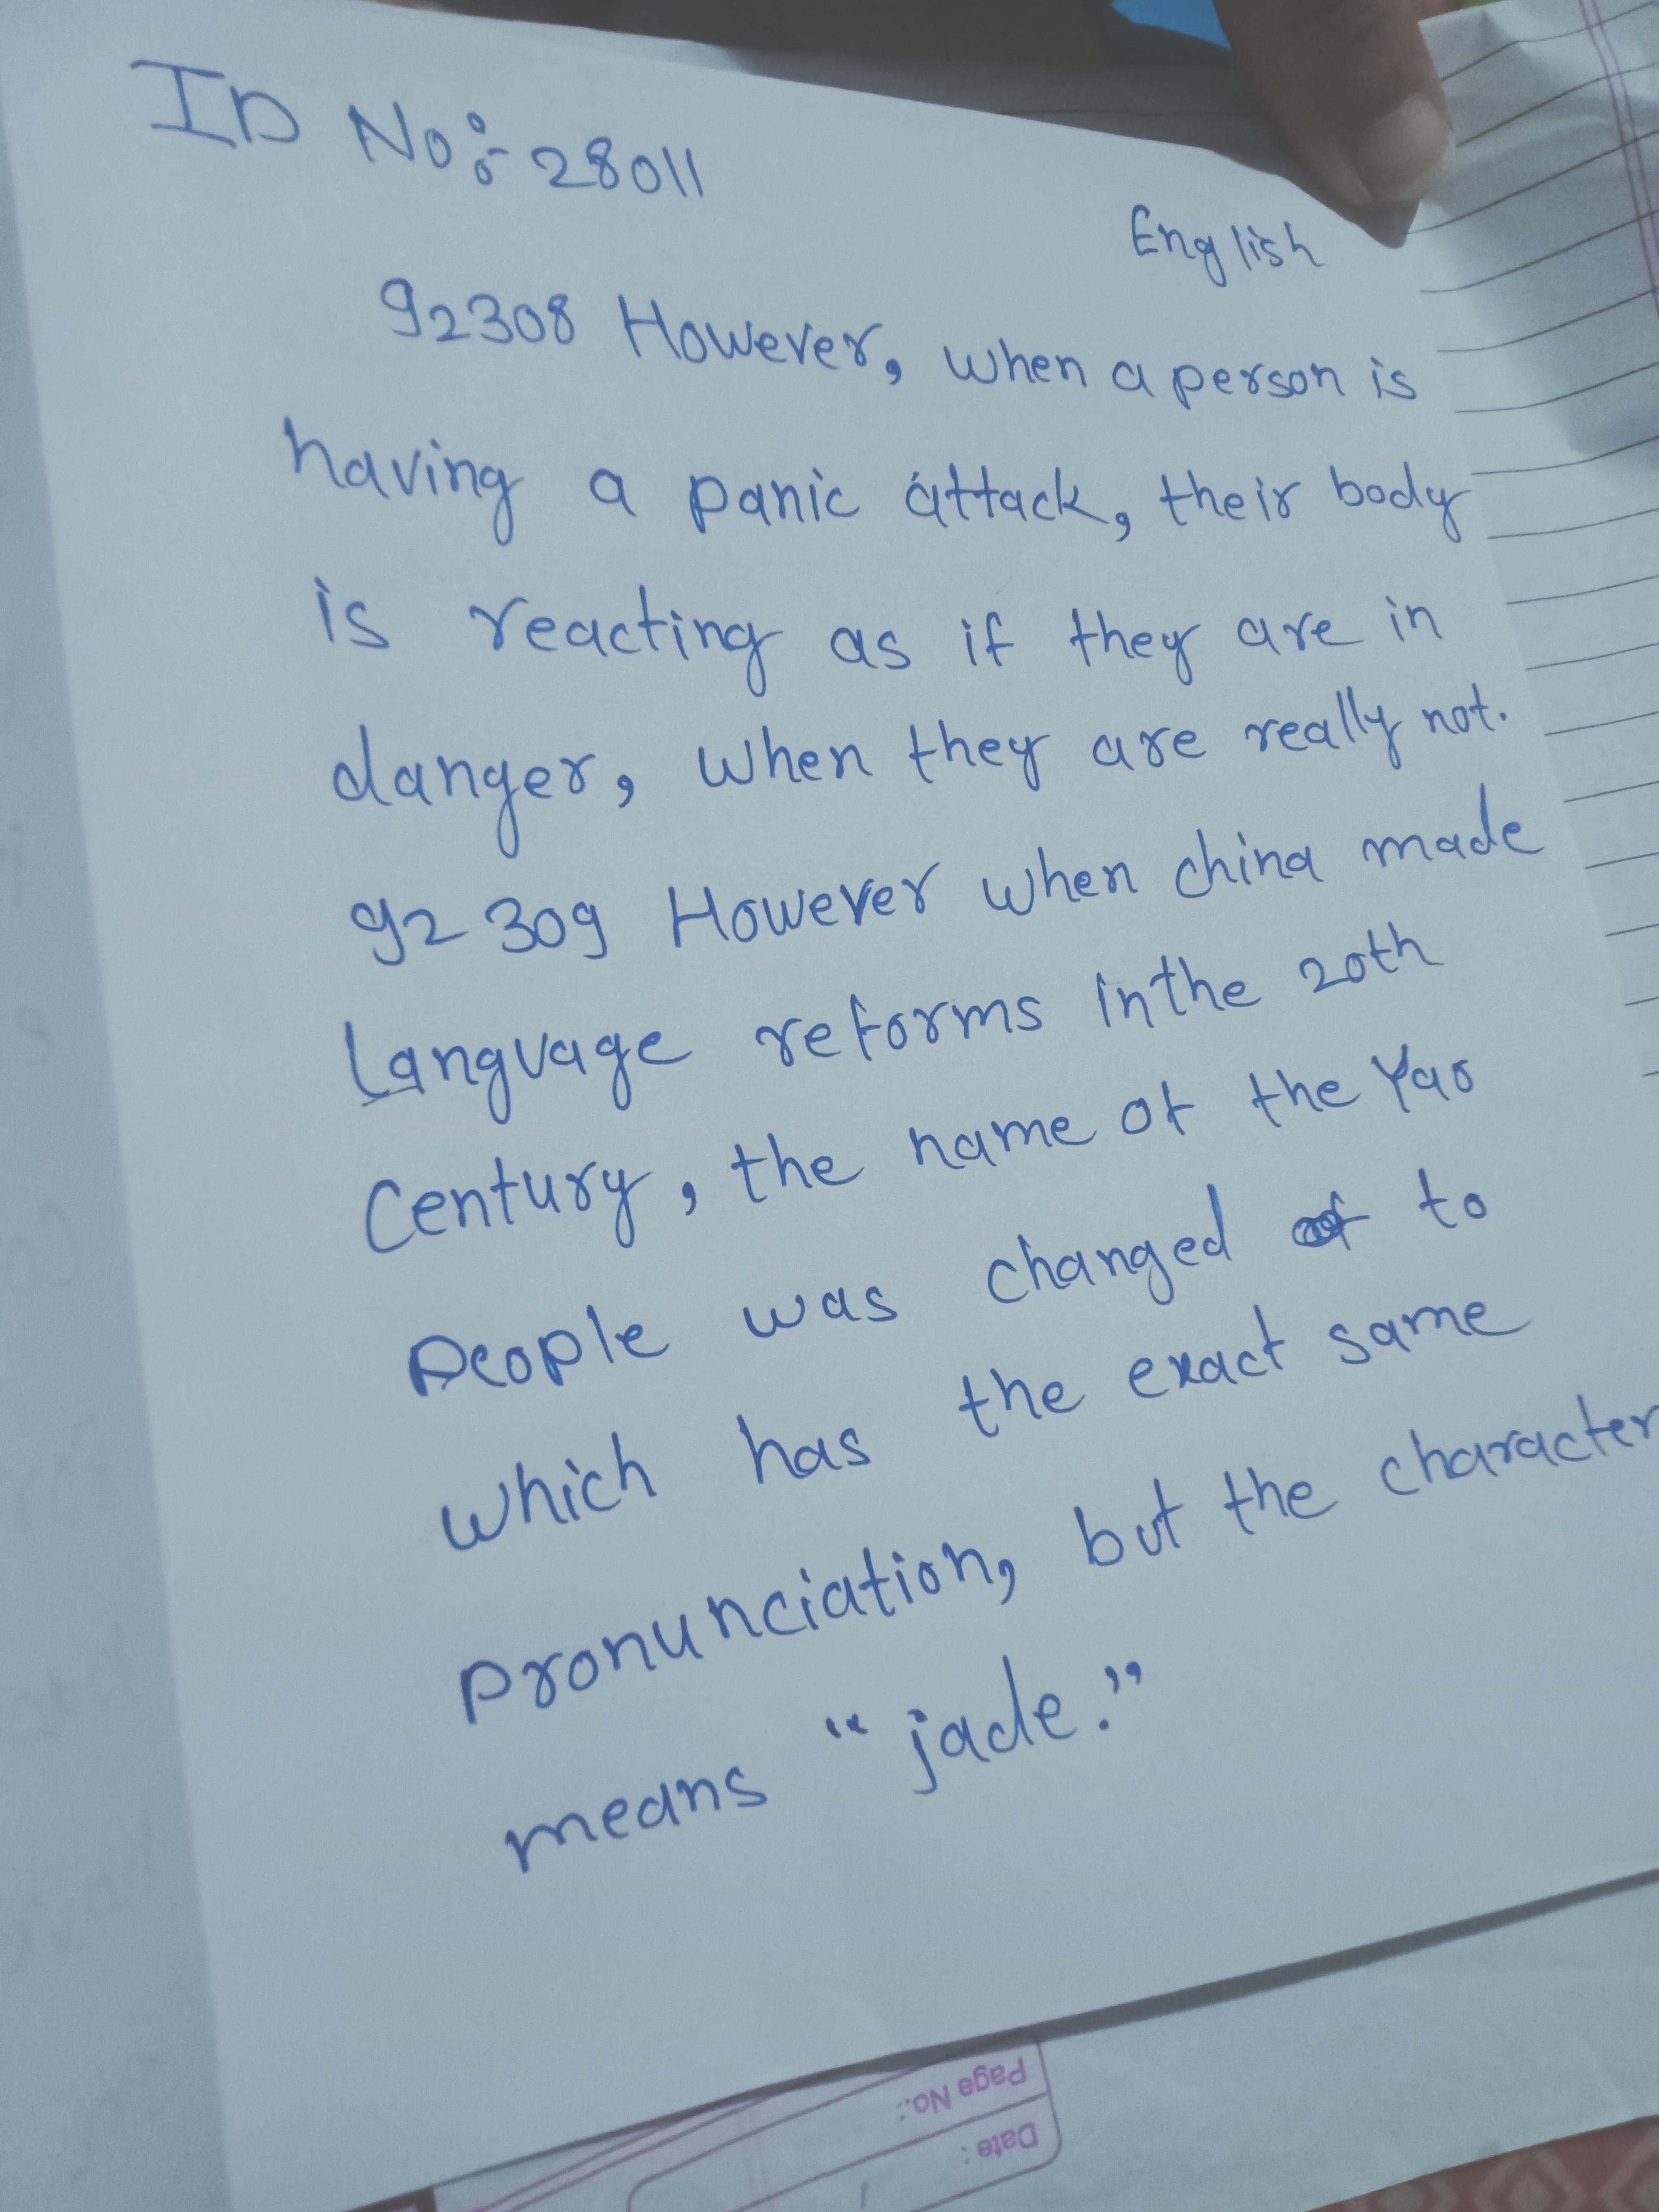 ID No:- 28011
English
92308 However, when a person is
having a panic attack, their body
is reacting as if they are in
danger, when they are really not.
92309 However when china made
Language reforms in the 20th
Century, the name of the Yao
People was changed to
which has the exact same
pronunciation, but the character
means "jade."
Page No.:
Date: